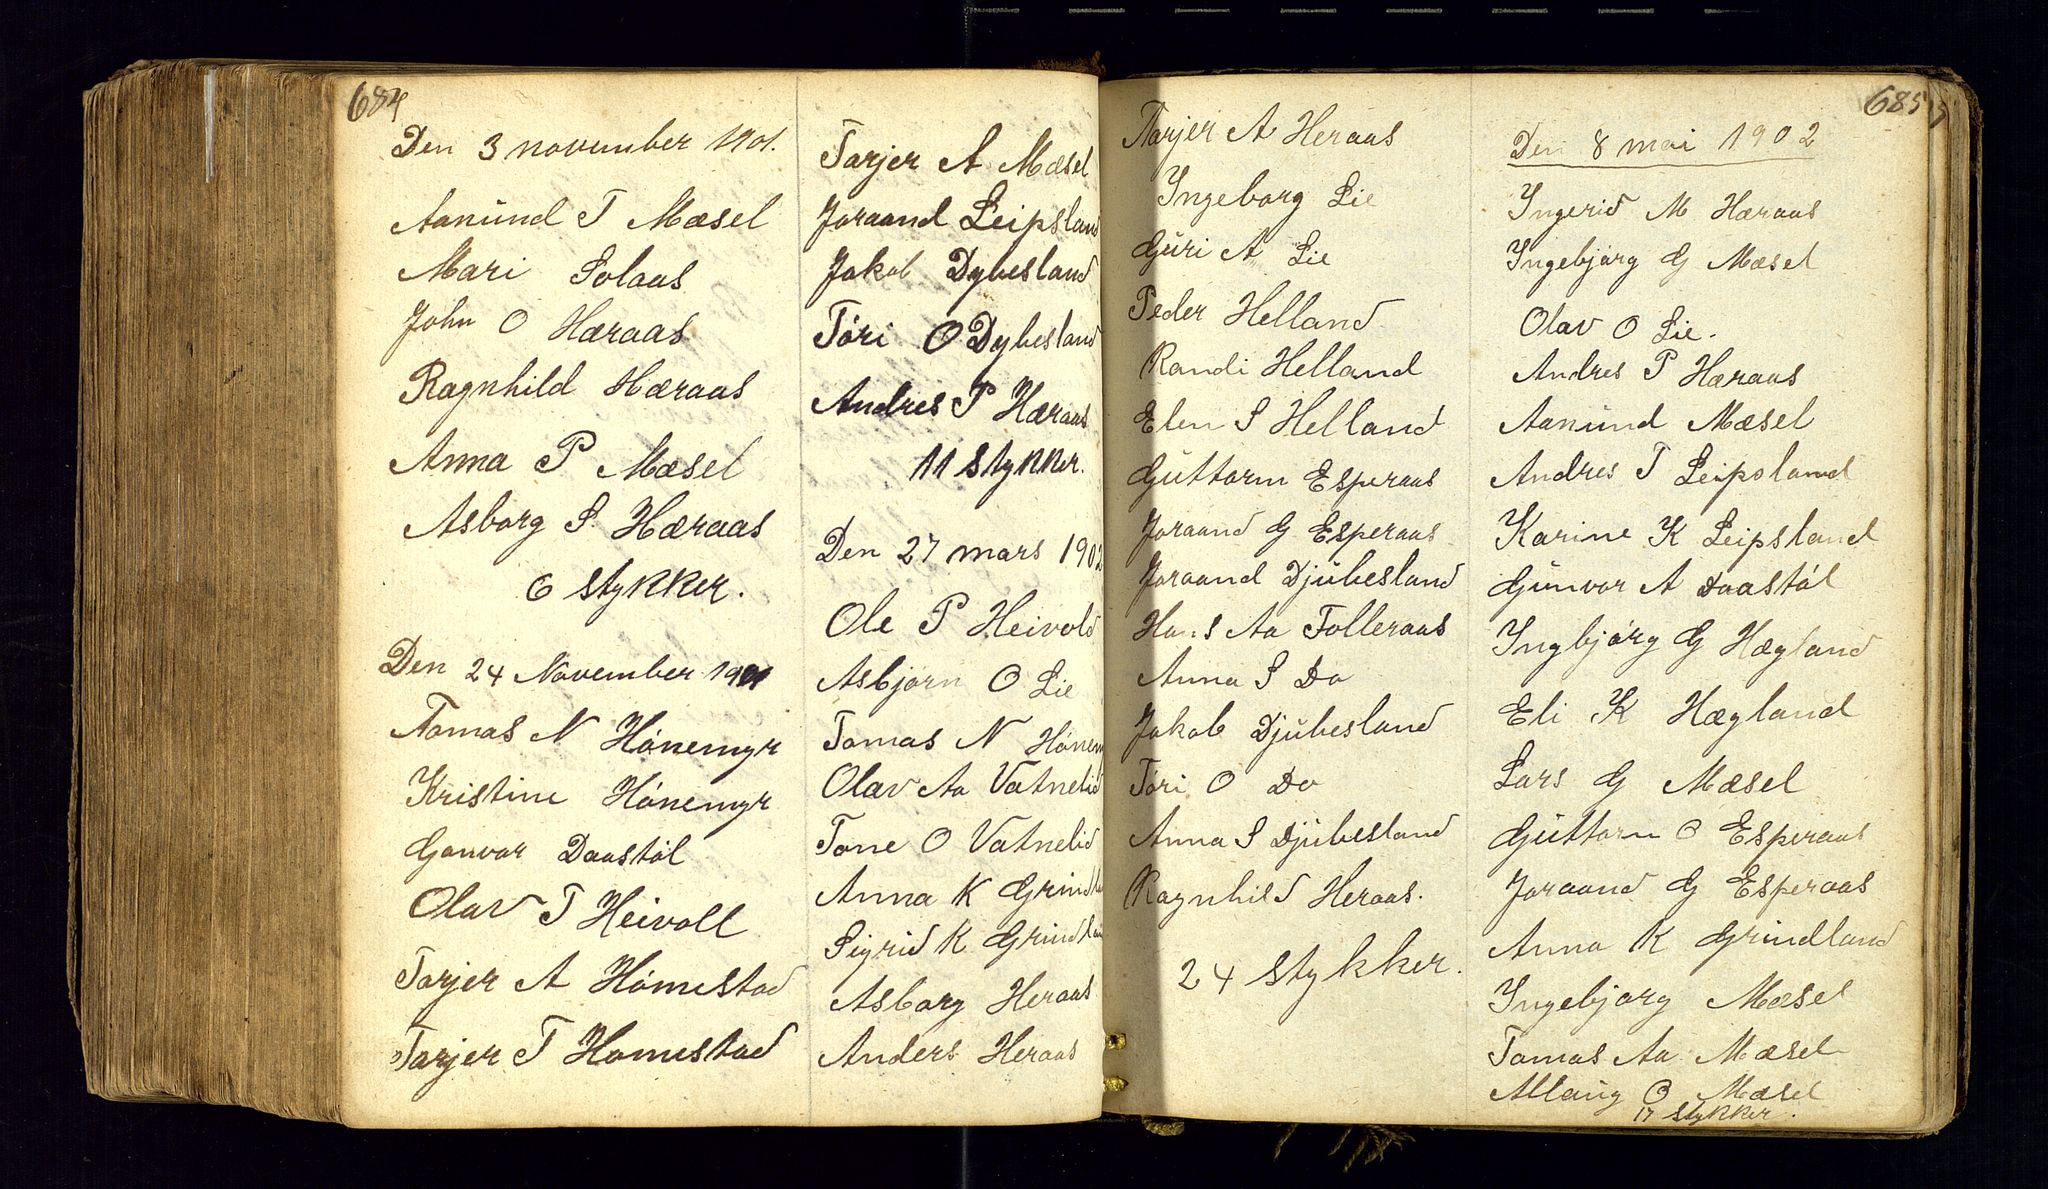 684
Den 3 november 1901.
Aanünd T Mæsel
Mari Solaas
John O Hæraas
Ragnhild Hæraas
Anna P Mæsel
Asborg S. Hæraas
6 stykker.
Den 24 November 1901
Tomas N Hónemyr
Kristine Hónemyr
Gonvor Daastól
Olav T Heivoll
Tarjer A Hómestad
Tarjer T Homestad
Tarjer A Mæsel
Joraand Leipsland
Jakob Dybesland
Tóri O Dybesland
Andres P Hæraas
11 stykker.
Den 27 mars 1902
Ole P Heivold
Asbjørn O Lie
Tomas N Hónemy
Olav Aa Vatnelid
Tone O Vatnelid
Anna K Grindla
Sigrid K Grindlan
Asborg Heraas
Anders Heraas
685
Tarjer A Heraas
Ingeborg Lie
Güri A Lie
Peder Helland
Randi Helland
Elen S Helland
Güttorm Esperaas
Joraand G Esperaas
Joraand Djübesland
Hans Aa Folleraas
Anna S Do
Jakob Djübesland
Tóri O Do
Anna S Djübesland
Ragnhild Heraas.
24 stykker.
Den 8 mai 1902
Ingerid M Hæraas
Ingebjørg G Mæsel
Olav O Lie.
Andres P Hæraas
Aanünd Mæsel
Andres T Leipsland
Karine K Leipsland
Günvor A Daastól
Ingbjórg G Hægland
Eli K Hægland
Lars G Mæsel
Güttorm O Esperaas
Joraand G Esperaas
Anna K Grindland
Ingebjorg Mæsel
Tomas Aa Mæsel
Allaüg O Mæsel
17 stykker.